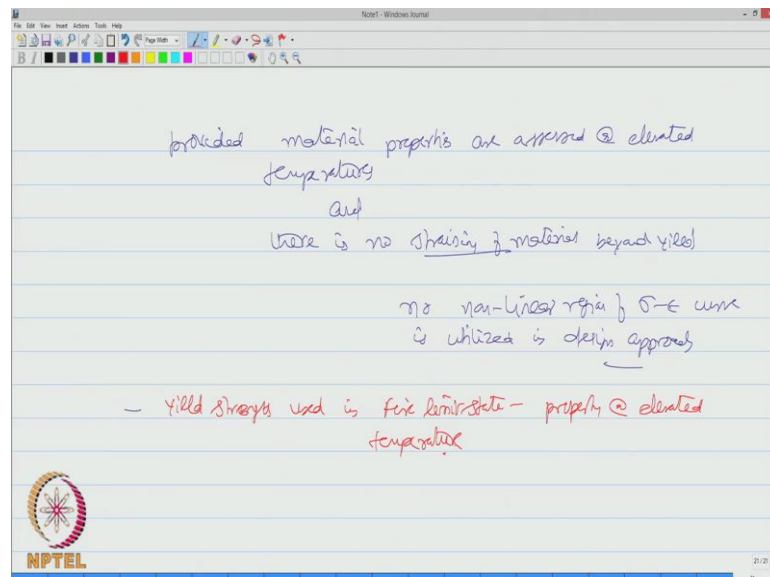 Note1 - Windows Journal
File Edit View Insert Actions Tools Help
Page Width
B I
provided material properties are assessed @ elevated
temperatures
and
there is no straining of material beyond yield
no non-linear region of σ-ε curve
is utilized in design approach
- yield strength used in fire limit state - property @ elevated
temperature
NPTEL
21/21